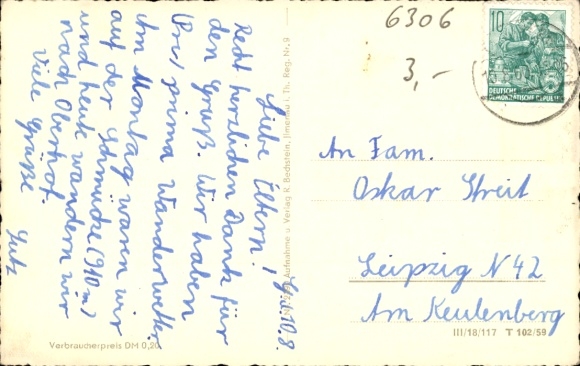 Liebe Eltern! 10.8.
Recht herzlichen Dank für
den Gruß. Wir haben
prima Wanderwetter.
Am Montag waren wir
auf der Schmücke (910 m)
und heute wandern wir
nach Oberhof.
Viele Grüße
Lutz
Verbraucherpreis DM 0,20
Aufnahme u. Verlag R. Bechstein, Ilmenau i. Th. Reg. Nr. 9
6306
3,-
10
DEUTSCHE
DEMOKRATISCHE REPUBLIK
An Fam.
Oskar Streit
Leipzig N 42
Am Keulenberg
III/18/117 T 102/59